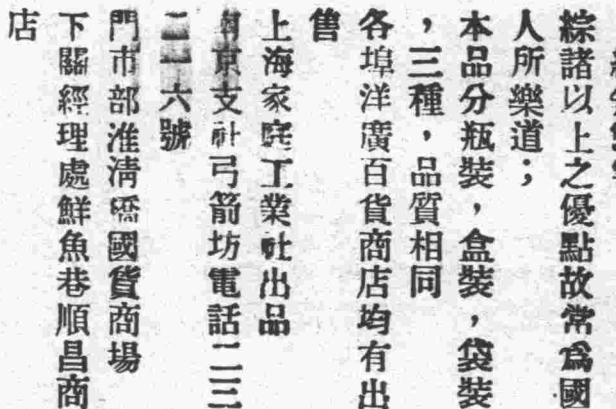 綜諸以上之優點故常爲國
人所樂道；
本品分瓶裝，盒裝，袋裝
，三種，品質相同
各埠洋廣百貨商店均有出
售
上海家庭工業社出品
南京支社弓箭坊電話二三
二一六號
門市部淮淸橋國貨商場
下關經理處鮮魚巷順昌商
店